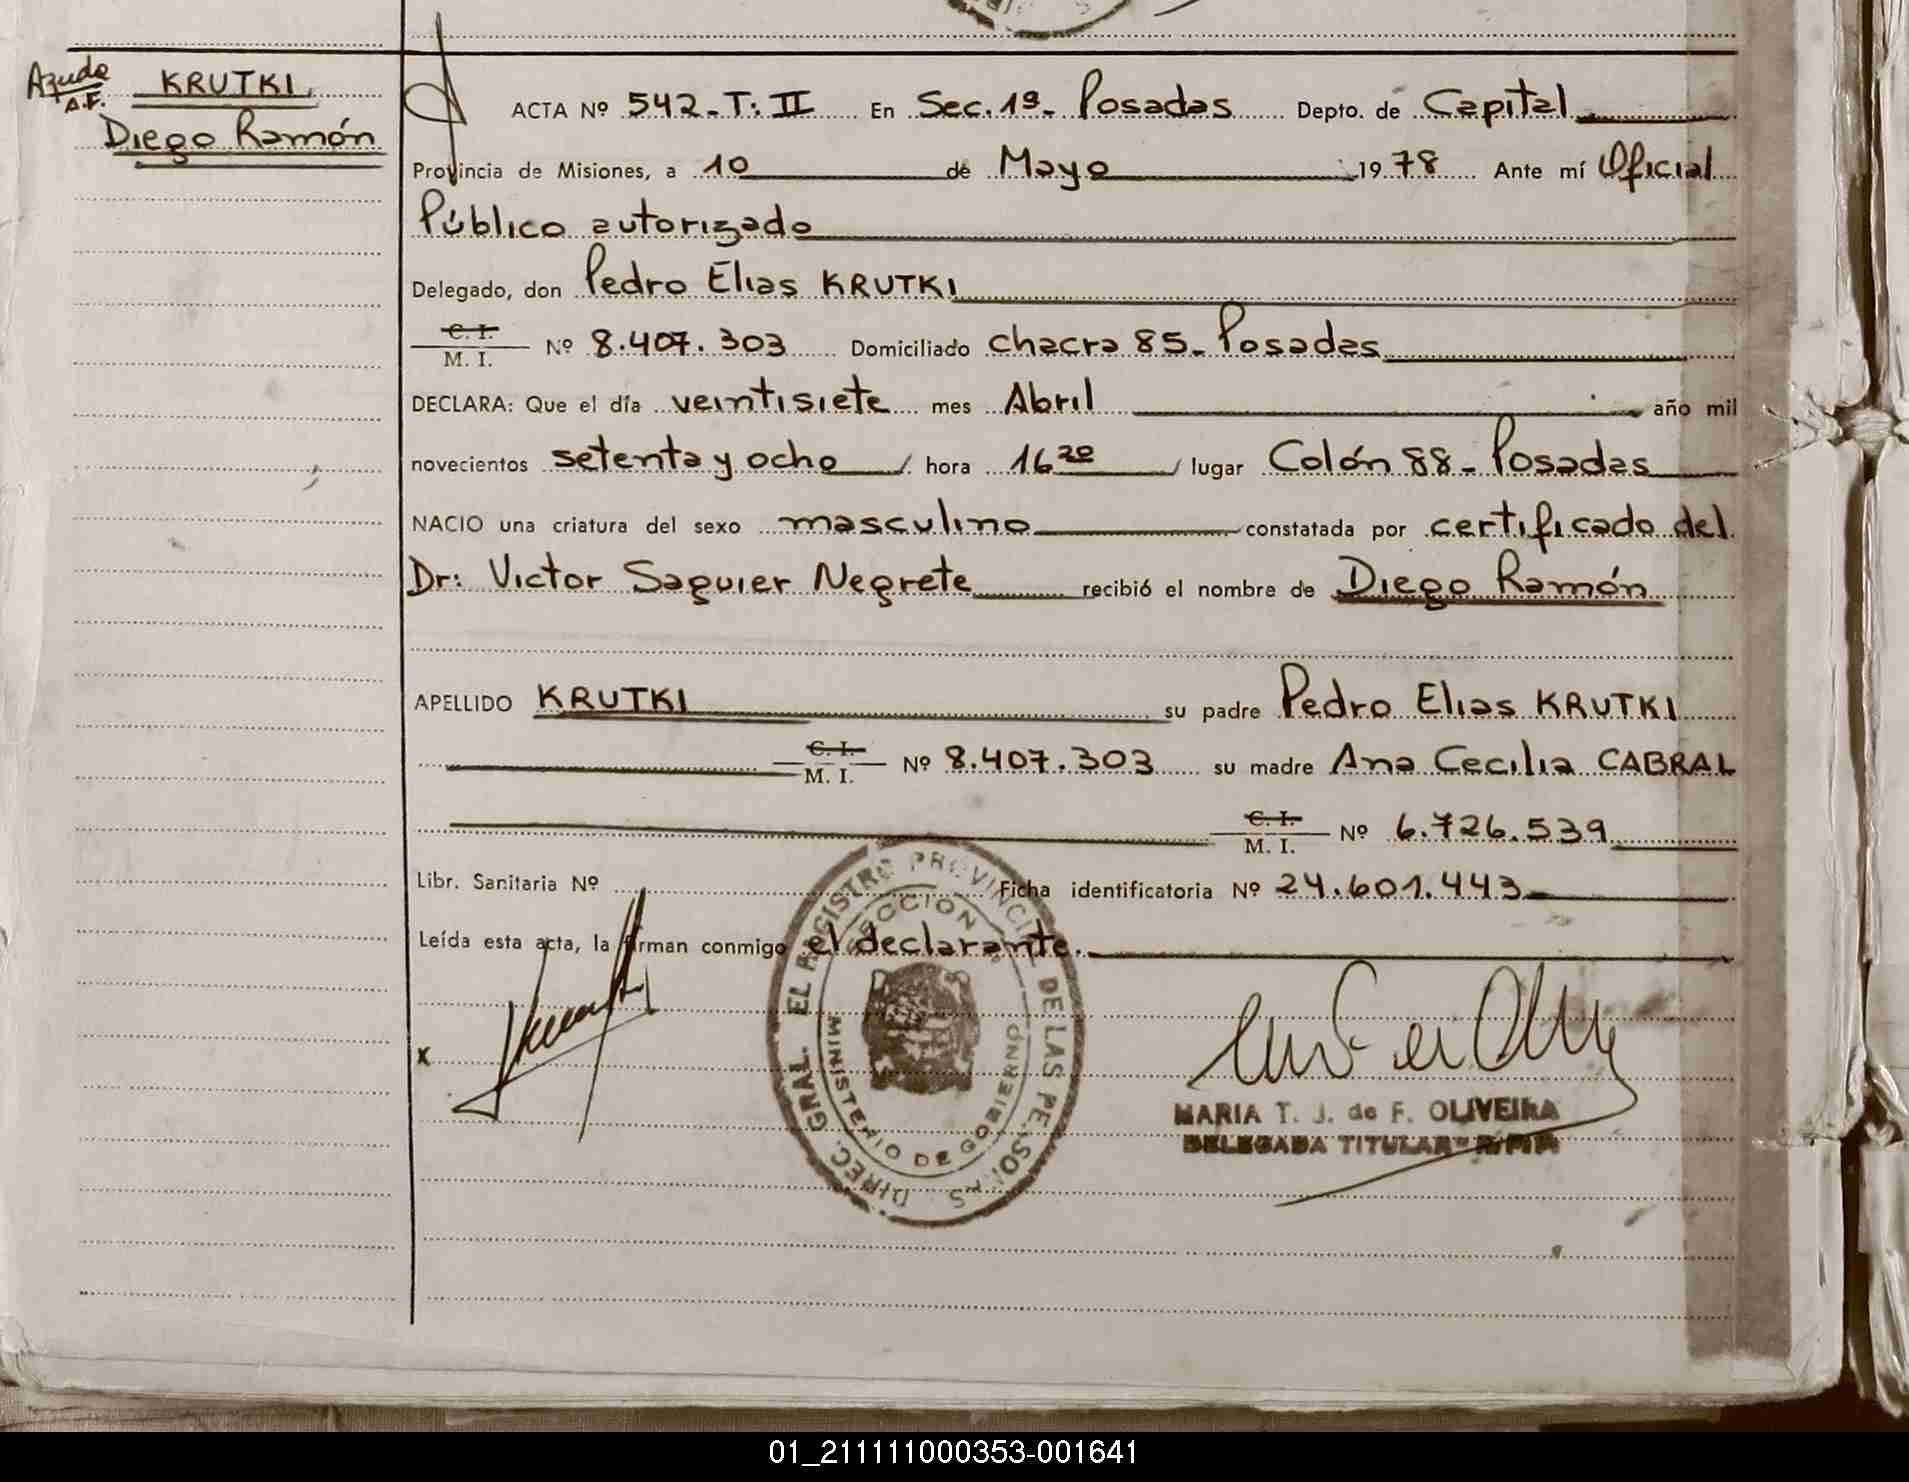 Ayuda KRUTKI
A.F.
Diego Ramón
ACTA Nº 542-T: II En Sec. 1ª - Posadas Depto. de Capital
Provincia de Misiones, a 10 de Mayo 1978 Ante mí Oficial
Público autorizado
Delegado, don Pedro Elias KRUTKI
C. I.
M. I. Nº 8.407.303 Domiciliado chacra 85 - Posadas
DECLARA: Que el día veintisiete mes Abril año mil
novecientos setenta y ocho hora 16 20 lugar Colón 88 - Posadas
NACIO una criatura del sexo masculino constatada por certificado del
Dr: Victor Saguier Negrete recibió el nombre de Diego Ramón
APELLIDO KRUTKI su padre Pedro Elias KRUTKI
C. I.
M. I. Nº 8.407.303 su madre Ana Cecilia CABRAL
C. I.
M. I. Nº 6.726.539
Libr. Sanitaria Nº Ficha identificatoria Nº 24.601.443
Leída esta acta, la firman conmigo el declarante.
DIREC. GRAL. EL REGISTRO PROVINCIAL DE LAS PERSONAS
SECCION
MINISTERIO DE GOBIERNO
x
MARIA T. J. de F. OLIVEIRA
DELEGADA TITULAR
01_211111000353-001641